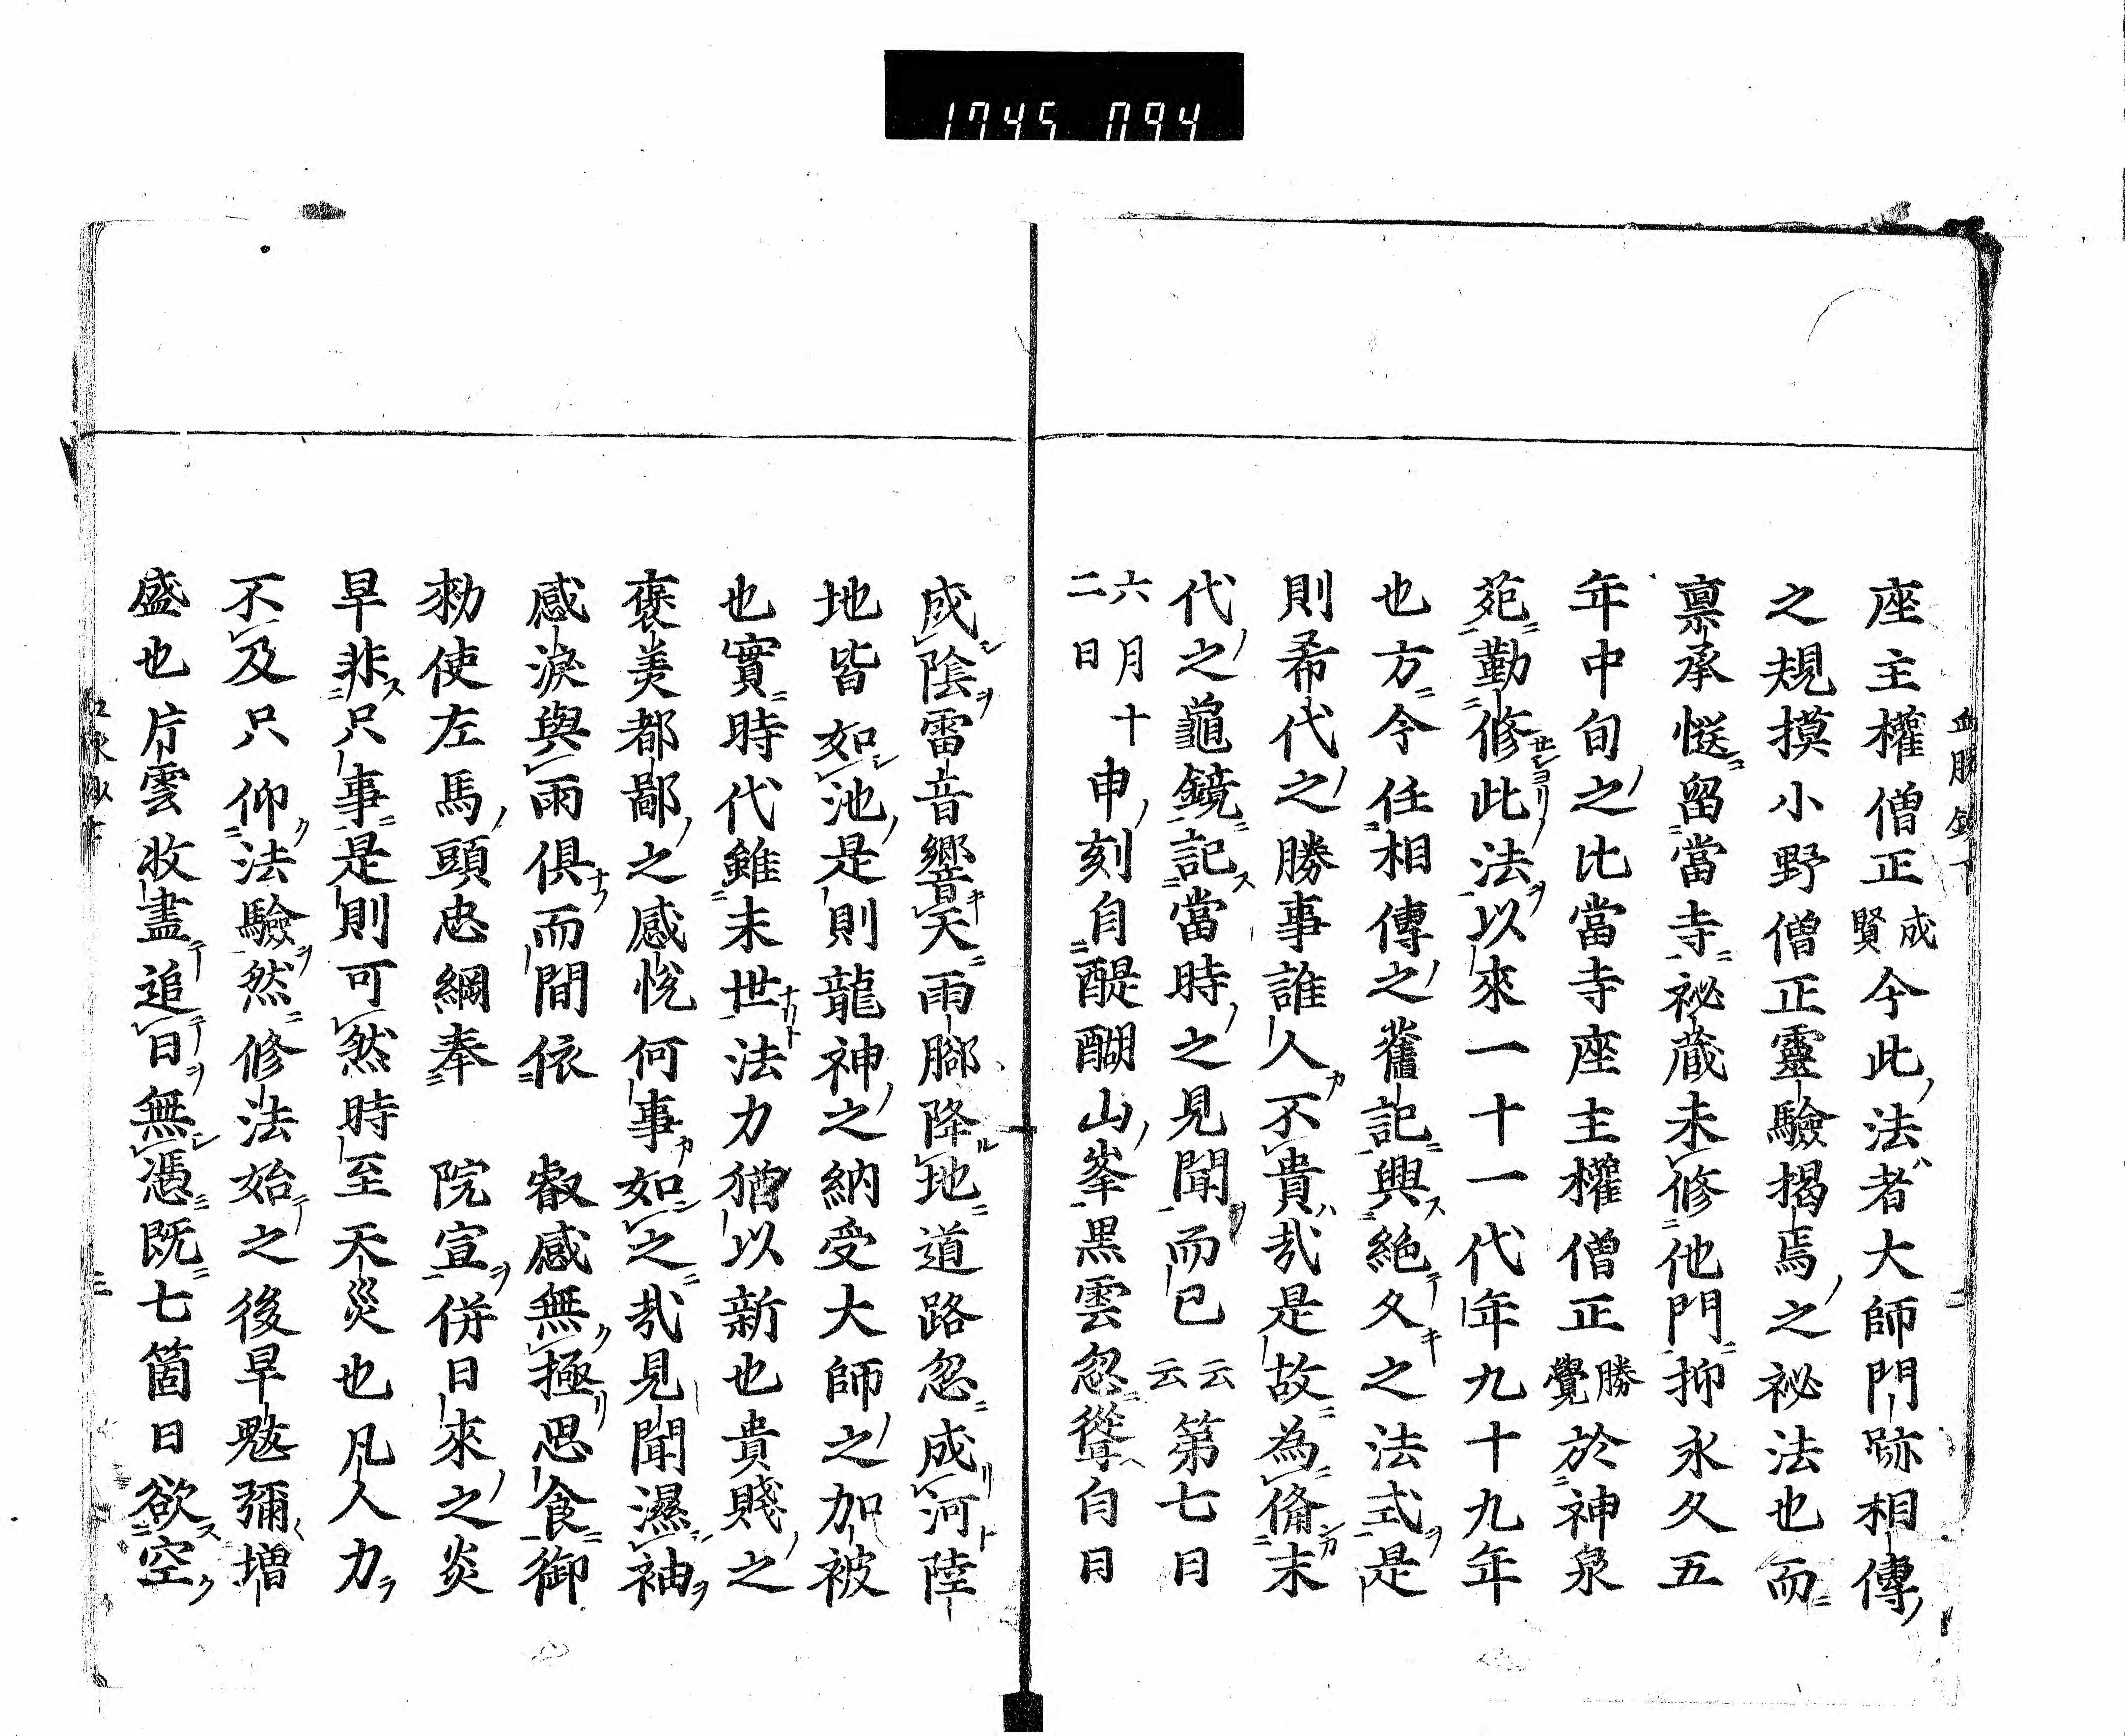 1745 094
座主權僧正成賢今此法者大師門跡相傳
之規摸小野僧正靈驗揭焉之祕法也而
稟承慥留當寺祕蔵未修他門抑永久五
年中旬之比當寺座主權僧正勝覺於神泉
苑勤修此法以來一十一代年九十九年
也方今任相傳之舊記興絶久之法式是
則希代之勝事誰人不貴哉是故為備末
代之龜鏡記當時之見聞而已云云第七日
六月十二日申刻自醍醐山峯黒雲忽聳白日
成陰雷音響天雨脚降地道路忽成河陸
地皆如池是則龍神之納受大師之加被
也實時代雖末世法力猶以新也貴賤之
褒美都鄙之感悦何事如之哉見聞濕袖
感淚與雨俱而間依　叡感無極思食御
勅使左馬頭忠綱奉　院宣併日來之炎
旱非只事是則可然時至天災也凡人力
不及只仰法驗然修法始之後旱魃彌増
盛也片雲收盡追日無憑既七箇日欲空